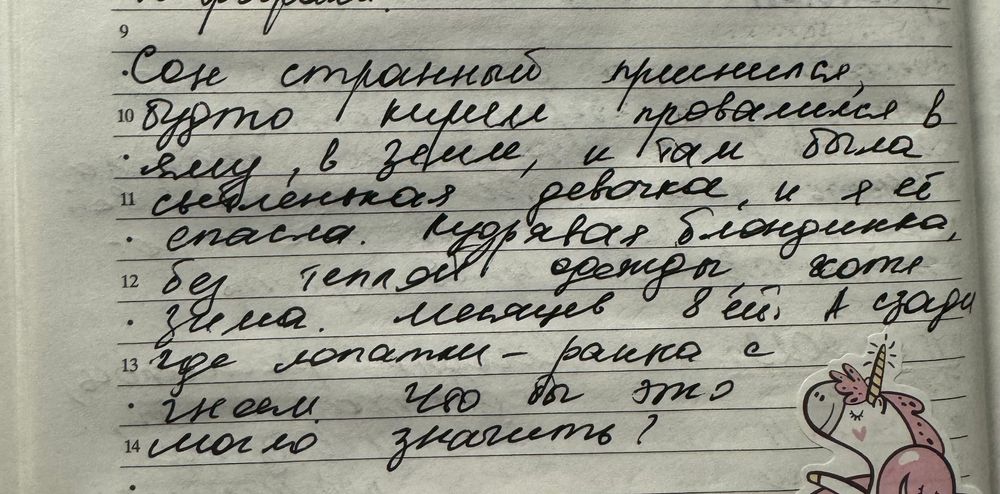 9
Сон странный приснился,
10 будто кирпич провалился в
яму, в земли, и там была
11 маленькая девочка, и я её
спасла. Кудрявая блондинка,
12 без теплой одежды, хотя
зима. Месяцев 8 ей. А сзади
13 где лопатки - ранка с
гноем Что бы это
14 могло значить?